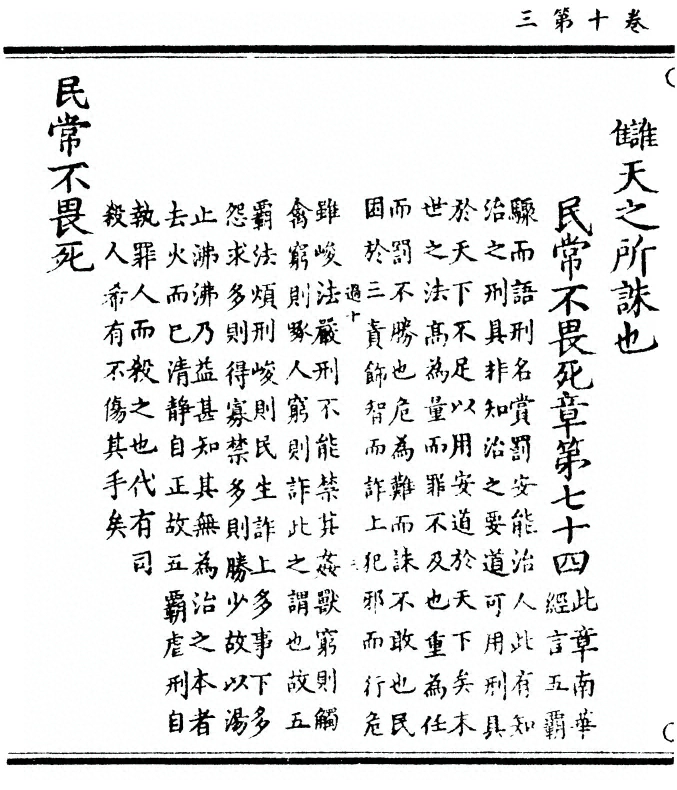 卷十第三
讎天之所誅也
民常不畏死章第七十四
此章南華
經言五覇
驟而語刑名賞罰安能治人此有知
治之刑具非知治之要道可用刑具
於天下不足以用安道於天下矣末
世之法髙為量而罪不及也重為任
而罰不勝也危為難而誅不敢也民
困於三責飾智而詐上犯邪而行危
過十
雖峻法嚴刑不能禁其姦獸窮則觸
禽窮則啄人窮則詐此之謂也故五
覇法煩刑峻則民生詐上多事下多
怨求多則得寡禁多則勝少故以湯
止沸沸乃益甚知其無為治之本者
去火而已清静自正故五覇虐刑自
執罪人而殺之也代有司
殺人希有不傷其手矣
民常不畏死